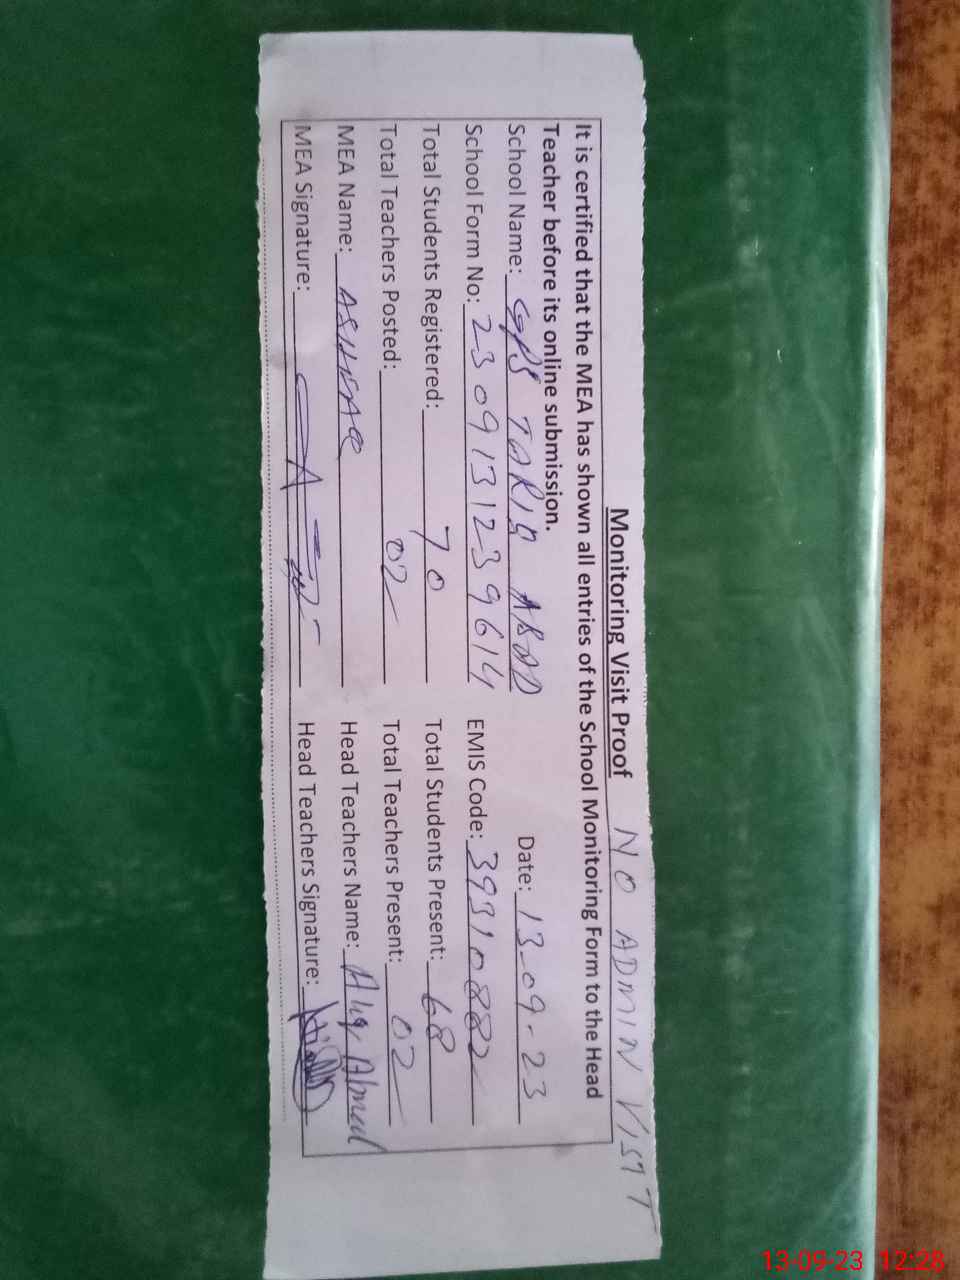 Monitoring Visit Proof NO ADMIN VISIT
It is certified that the MEA has shown all entries of the School Monitoring Form to the Head
Teacher before its online submission.
Date: 13-09-23
School Name: GPS TARIQ ABAD
School Form No: 2309131239614 EMIS Code: 39310882
Total Students Registered: 70 Total Students Present: 68
Total Teachers Posted: 02 Total Teachers Present: 02
MEA Name: ASHFAQ Head Teachers Name: Ahmed
MEA Signature: Head Teachers Signature:
13-09-23 12:28